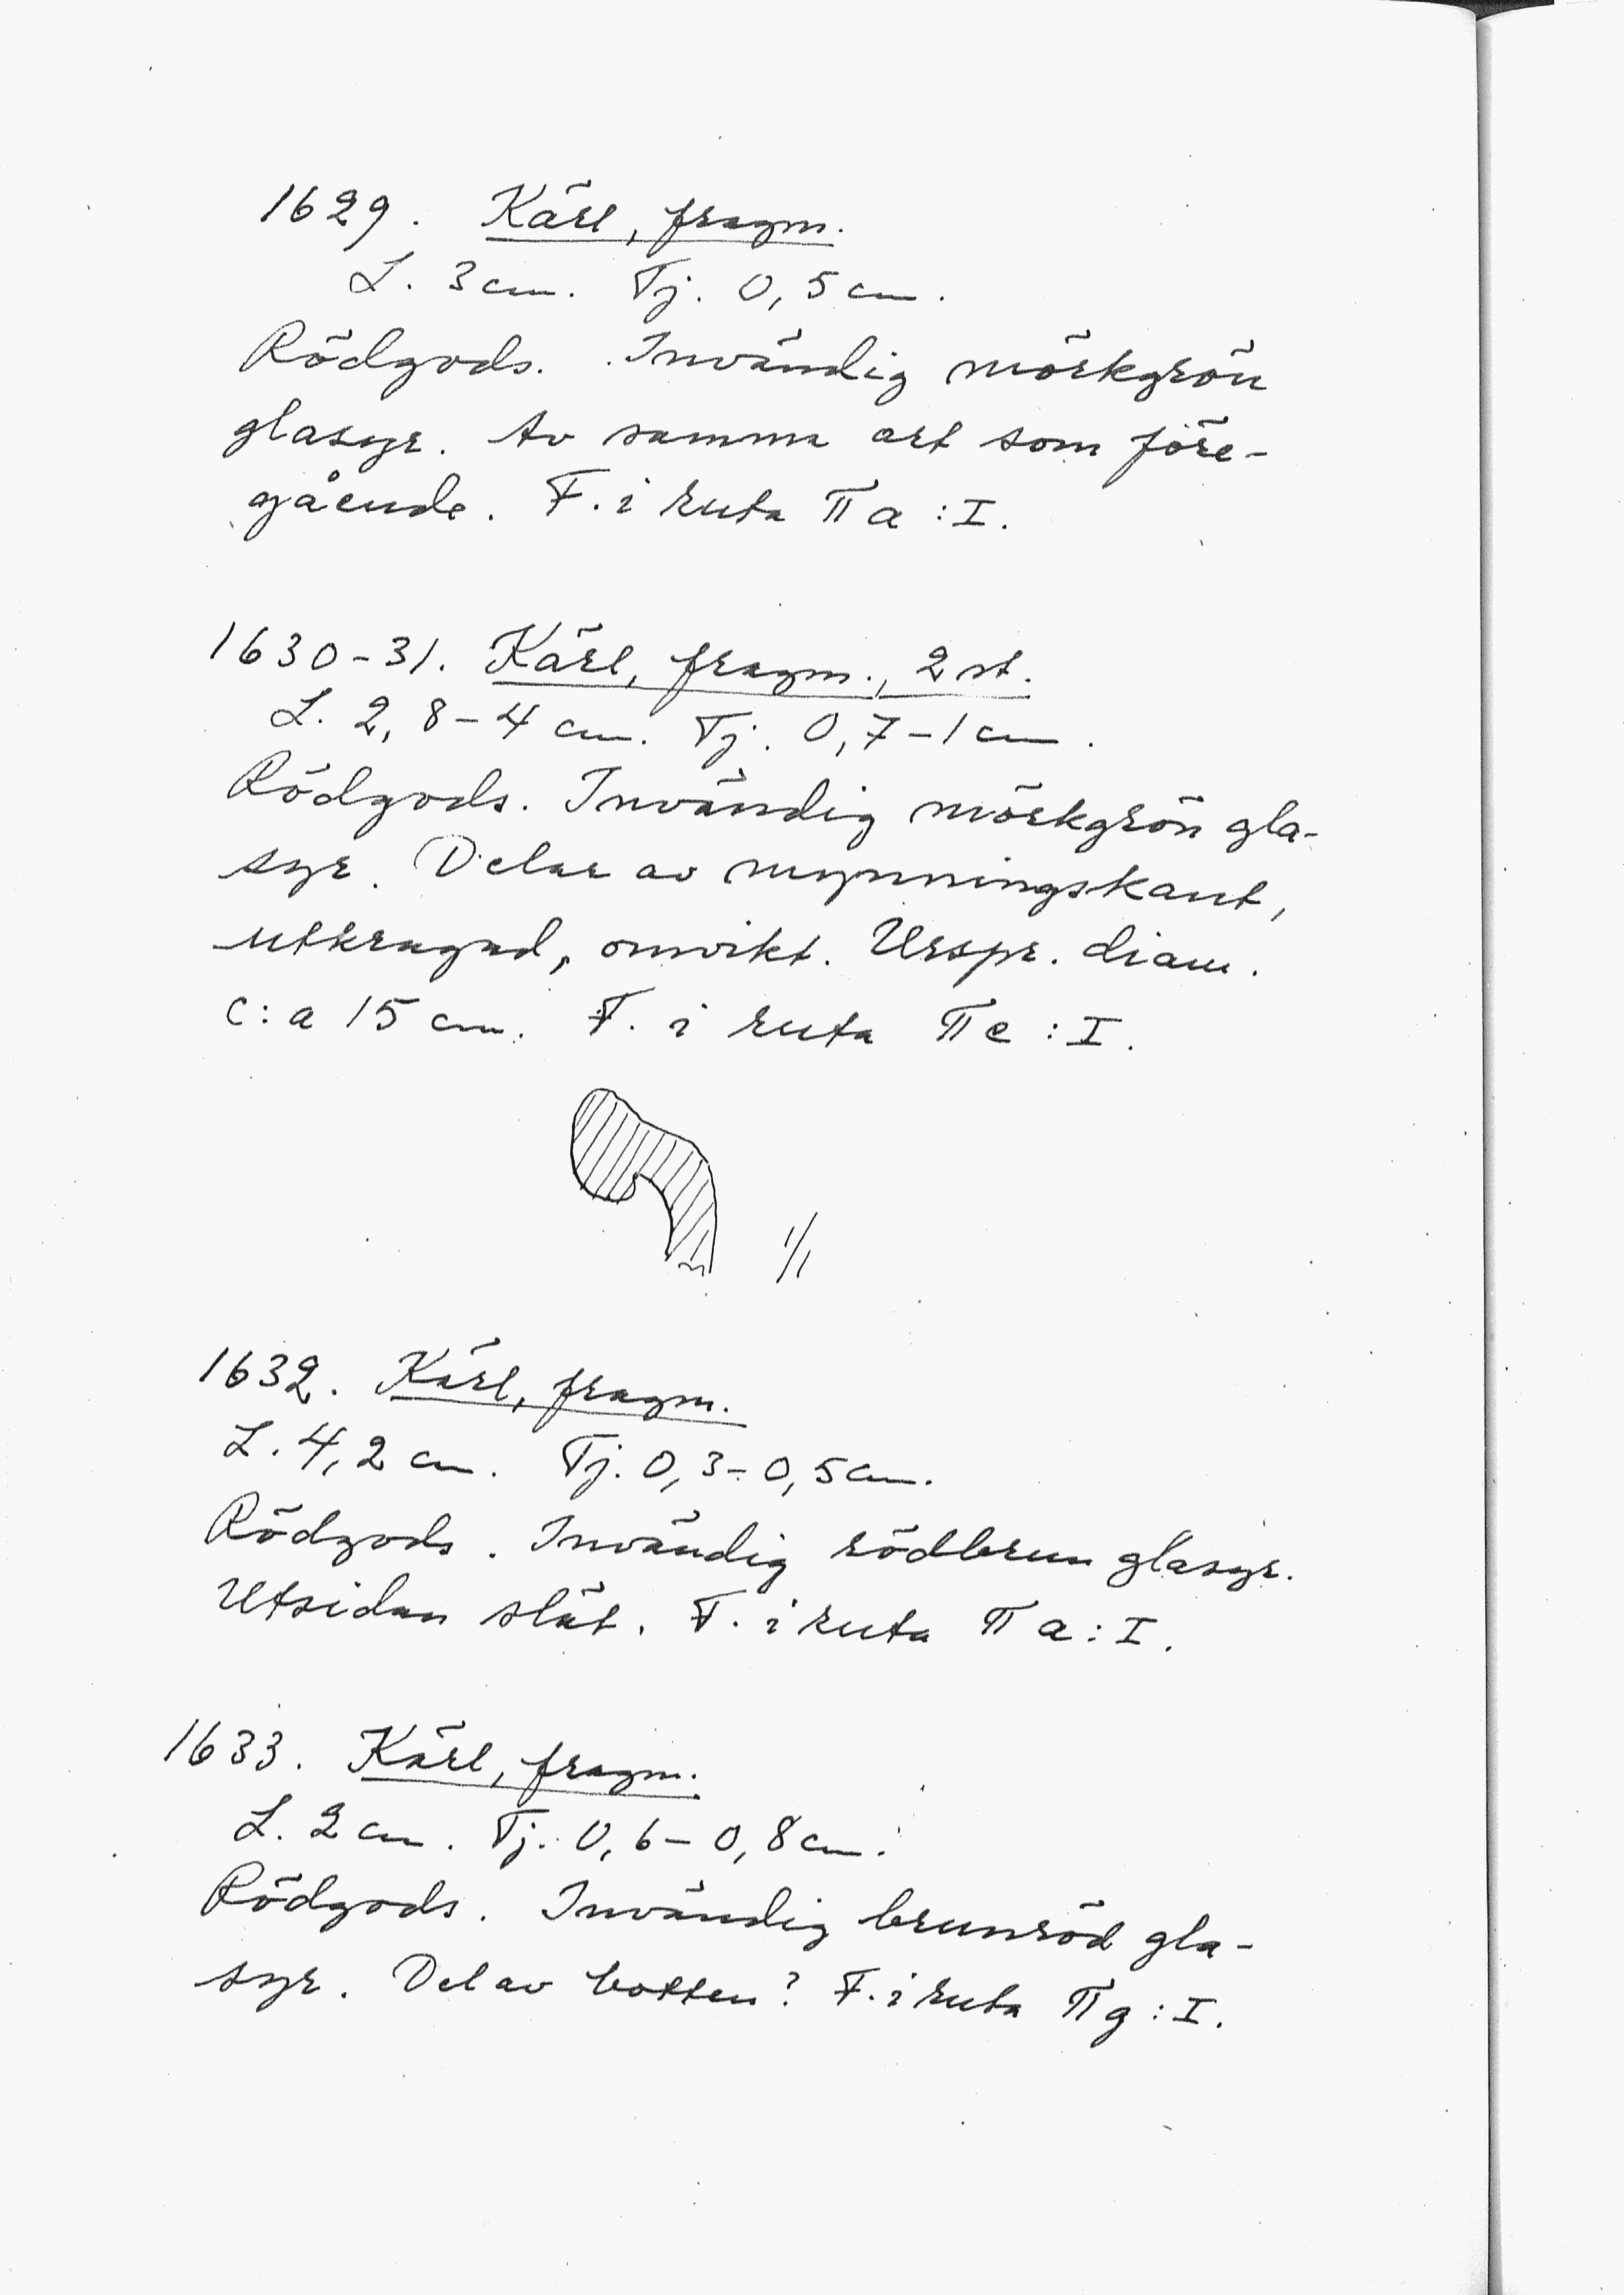 1629. Kärl, fragm.
L. 3 cm. Tj. 0,5 cm.
Rödgods. Invändig mörkgrön
glasyr. Av samma art som före-
gående. F. i ruta II a : I.
1630-31. Kärl, fragm., 2 st.
L. 2,8-4 cm. Tj. 0,7-1 cm.
Rödgods. Invändig mörkgrön gla-
syr. Delar av mynningskant,
utkragad, omvikt. Urspr. diam.
c:a 15 cm. F. i ruta II e : I.
1/1
1632. Kärl, fragm.
L. 4,2 cm. Tj. 0,3-0,5 cm.
Rödgods. Invändig rödbrun glasyr.
Utsidan slät. F. i ruta II a : I.
1633. Kärl, fragm.
L. 2 cm. Tj. 0,6-0,8 cm.
Rödgods. Invändig brunröd gla-
syr. Del av botten? F. i ruta II g : I.